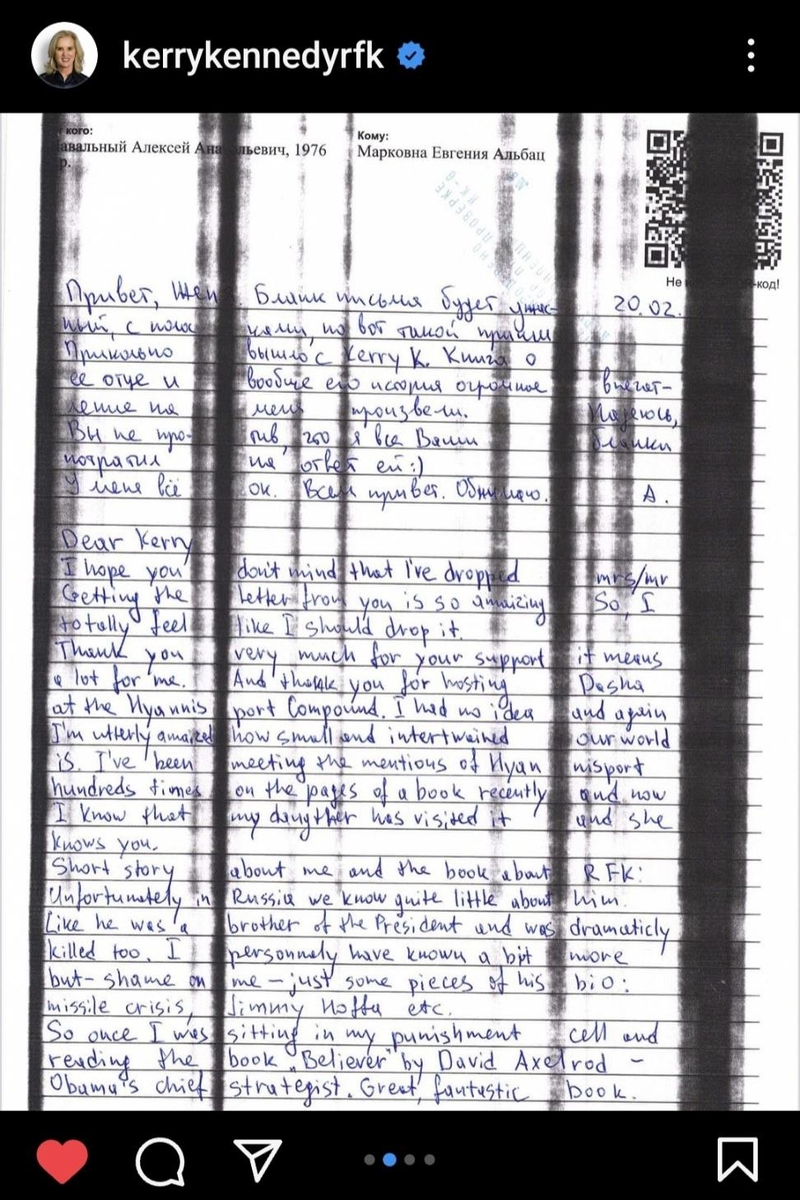 kerrykennedyrfk
кого:
авальный Алексей Ана льевич, 1976
р.
Кому:
Марковна Евгения Альбац
Не код!
Привет, Жен . Бланк письма будет ужас- 20.02.
ный, с поло сами, но вот такой пришл
Прикольно вышло с Kerry K. Книга о
ее отце и вообще его история огромное впечат-
ление на меня произвели. Надеюсь,
Вы не про- тив, что я все Ваши бланки
потратил на ответ ей:)
У меня всё ок. Всем привет. Обнимаю. А.
Dear Kerry
I hope you don't mind that I've dropped mrs/mr
Getting the letter from you is so amaizing So, I
totally feel like I should drop it.
Thank you very much for your support it means
a lot for me. And thank you for hosting Dasha
at the Hyannis port Compound. I had no idea and again
I'm utterly amaized how small and intertwained our world
is. I've been meeting the mentions of Hyan nisport
hundreds times on the pages of a book recently and now
I know that my daughter has visited it and she
knows you.
Short story about me and the book about RFK:
Unfortunately in Russia we know quite little about him.
Like he was a brother of the President and was dramaticly
killed too. I personnaly have known a bit more
but - shame on me - just some pieces of his bio:
missile crisis, Jimmy Hoffa etc.
So once I was sitting in my punishment cell and
reading the book „Believer" by David Axelrod -
Obama's chief strategist. Great, fantastic book.